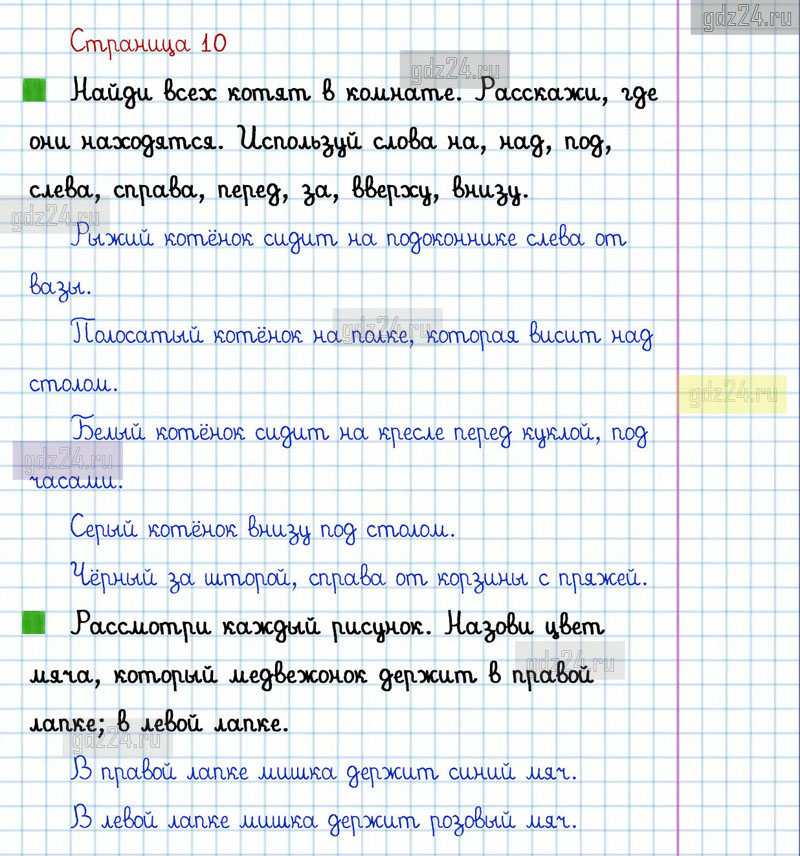 gdz24.ru
Страница 10
gdz24.ru
Найди всех котят в комнате. Расскажи, где
они находятся. Используй слова на, над, под,
слева, справа, перед, за, вверху, внизу.
gdz24.ru
Рыжий котёнок сидит на подоконнике слева от
вазы.
gdz24.ru
Полосатый котёнок на полке, которая висит над
столом.
gdz24.ru
Белый котёнок сидит на кресле перед куклой, под
gdz24.ru
часами.
Серый котёнок внизу под столом.
Чёрный за шторой, справа от корзины с пряжей.
Рассмотри каждый рисунок. Назови цвет
gdz24.ru
мяча, который медвежонок держит в правой
лапке; в левой лапке.
gdz24.ru
В правой лапке мишка держит синий мяч.
В левой лапке мишка держит розовый мяч.